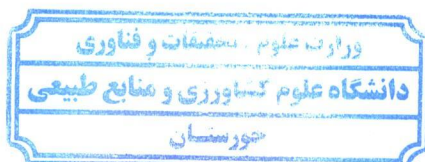 وزارت علوم ، تحقیقات و فناوری
دانشگاه علوم کشاورزی و منابع طبیعی
خوزستان